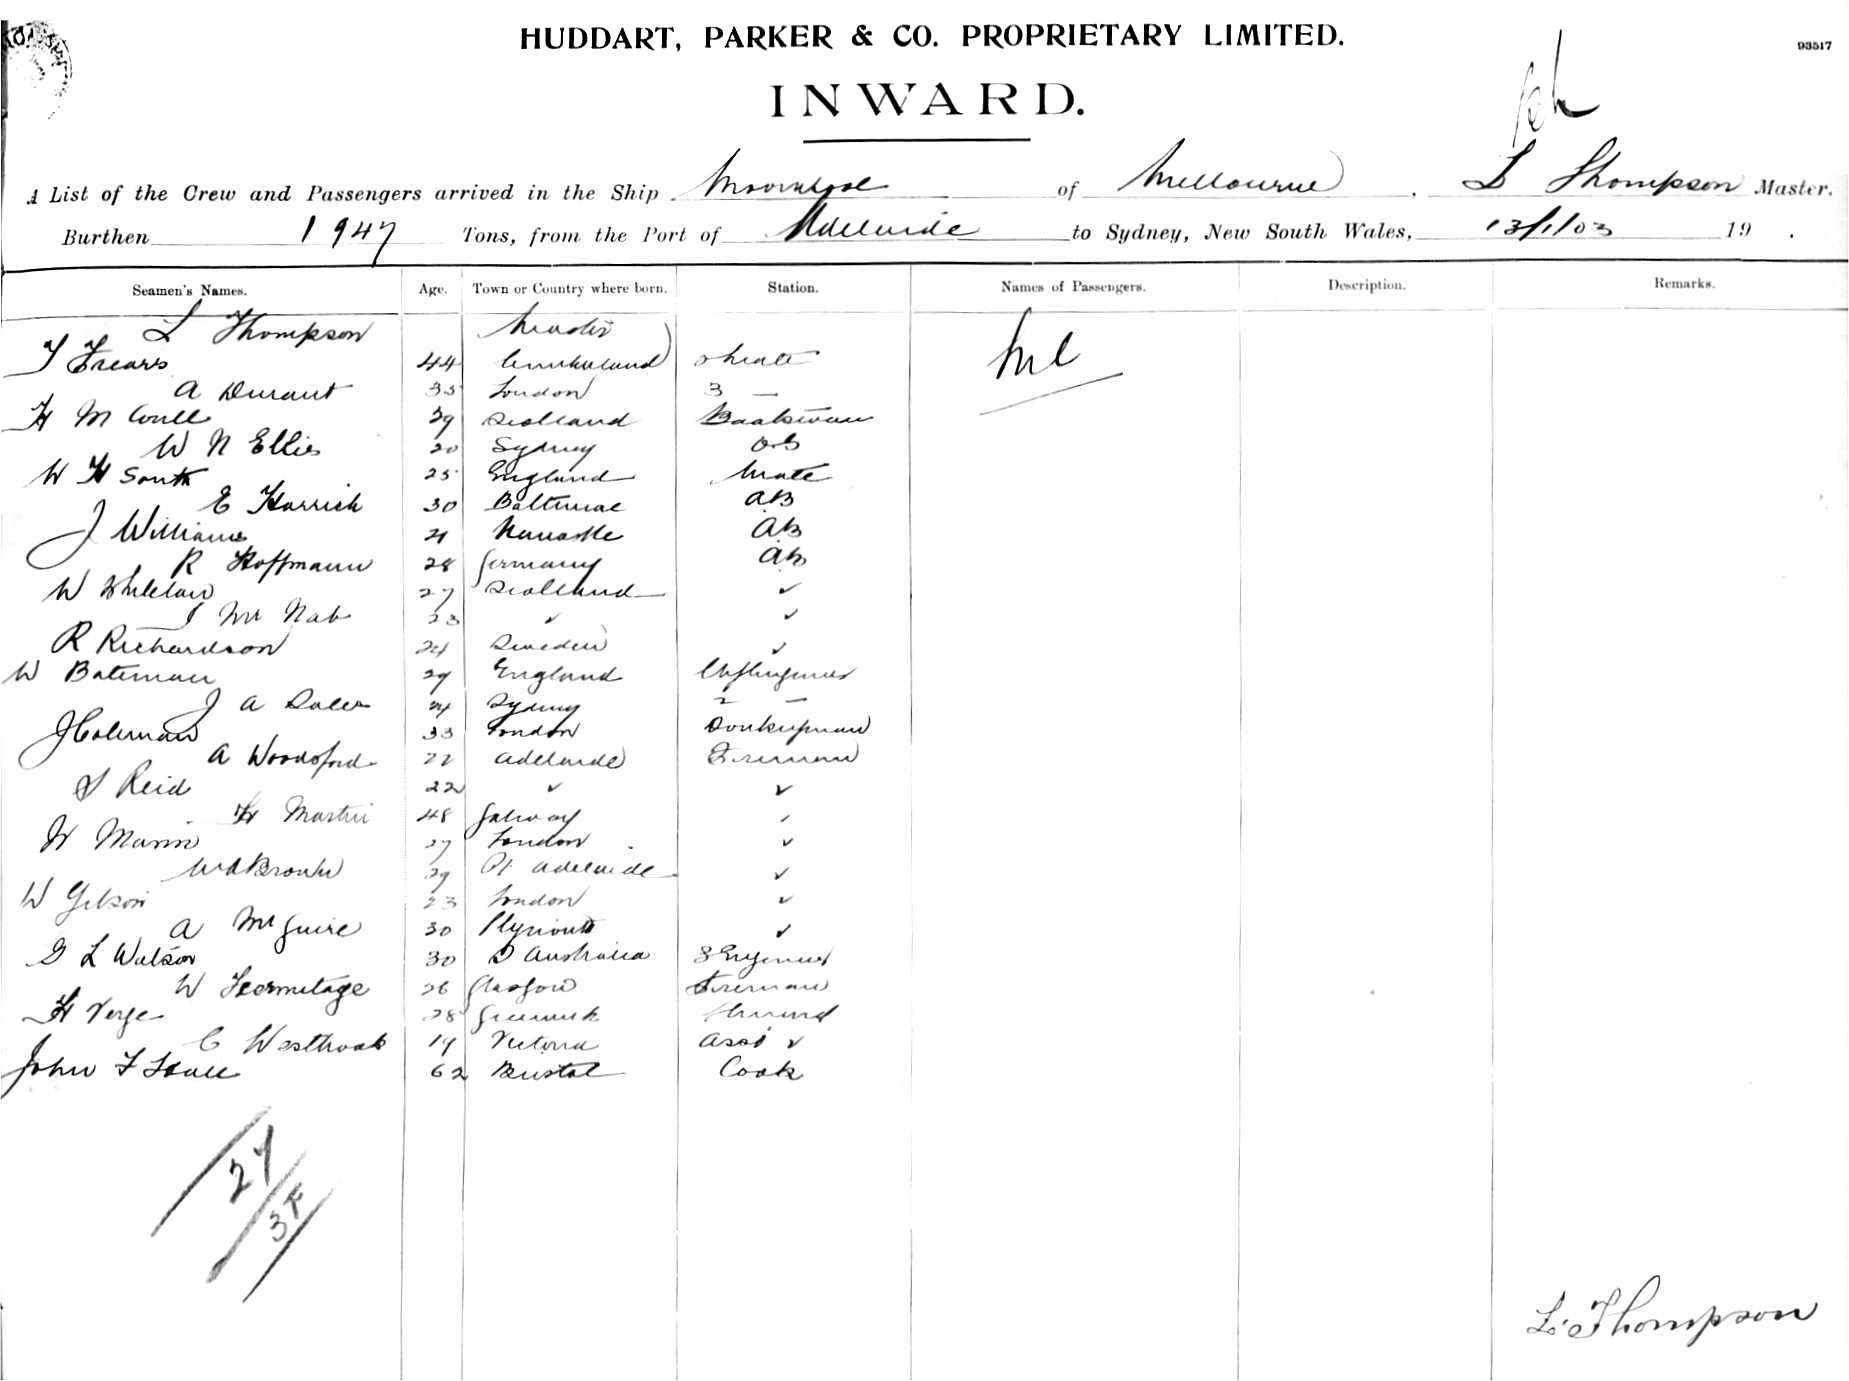 93517
HUDDART, PARKER & CO. PROPRIETARY LIMITED.
INWARD.
A List of the Crew and Passengers arrived in the Ship Moorabool of Melbourne, L Thompson Master.
Burthen 1947 Tons, from the Port of Adelaide to Sydney, New South Wales, 13/1/03 19 .
Seamen's Names. Age. Town or Country where born. Station. Names of Passengers. Description. Remarks.
L Thompson Master
T Frears 44 Cumberland 2 Mate Nil
A Durant 35 London 3 —
H M Coull 39 Scotland
W N Ellis 20 Sydney OS
W H South 25 England Mate
E Karrick 30 Baltimore AB
J Williams 21 Newcastle AB
R Hoffmann 28 Germany AB
W 27 Scotland ✓
J Mc Nab 23 ✓ ✓
R Richardson 24 Sweden ✓
W Bateman 29 England Chf Engineer
J A 24 Sydney 2 —
J Coleman 33 London Donkeyman
A Woodsford 22 Adelaide Fireman
S Reid 22 ✓ ✓
H Martin 48 Galway ✓
W Mann 27 London ✓
W A Brown 29 Pt Adelaide ✓
W Gibson 23 London ✓
A Mc Guire 30 Plymouth ✓
G L Watson 30 S Australia 3 Engineer
W Hermitage 26 Glasgow Fireman
H Verge 28 Greenwich Steward
C Westhoak 19 Victoria Asst ✓
John F 62 Bristol Cook
27
L. Thompson